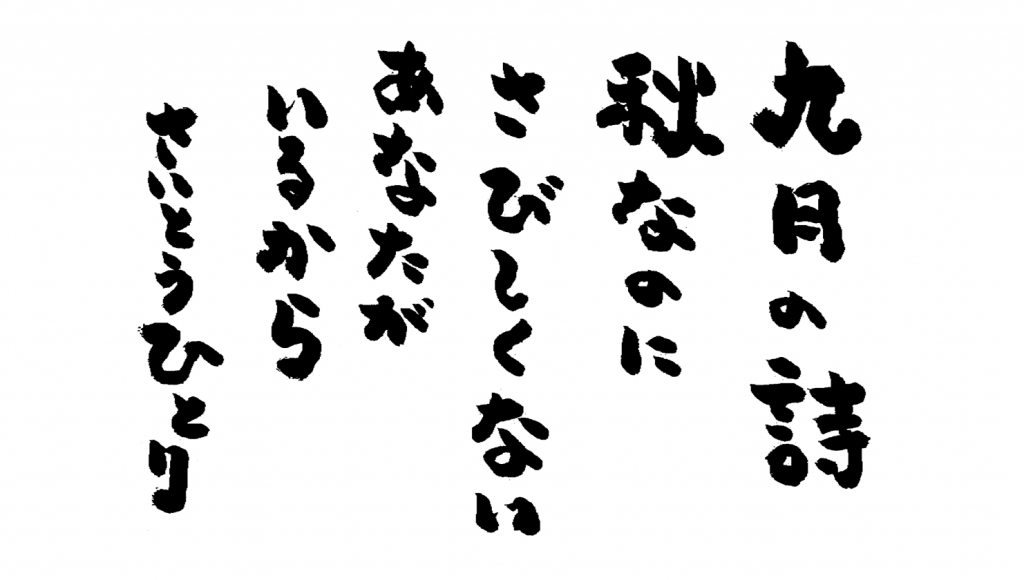 九月の詩
秋なのに
さびしくない
あなたが
いるから
さいとうひとり